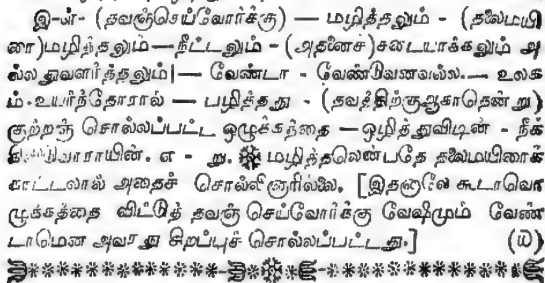 இ-ள்- (தவஞ்செய்வோர்க்கு) — மழித்தலும் - (தலைமயி
ரை)மழிந்தலும் — நீட்டலும் - (அதனைச்)சடையாக்கலும் அ
ல்லதுவளர்ந்தலும் | — வேண்டா - வேண்டுவனவல்ல. — உலக
ம்-உயர்ந்தோரால் — பழித்தது - (தவத்திற்குஆகாதென்று)
குற்றஞ் சொல்லப்பட்ட ஒழுக்கந்தை — ஒழித்துவிடின் - நீக்
கிவிடுவாராயின். எ - று. ❋ மழித்தலென்பதே தலைமயிரைக்
காட்டலால் அதைச் சொல்லினாரில்லை. [இதனாலே கூடாவொ
ழுக்கத்தை விட்டுத் தவஞ் செய்வோர்க்கு வேஷமும் வேண்
டாமென அவரது சிறப்புச் சொல்லப்பட்டது.] (ய)